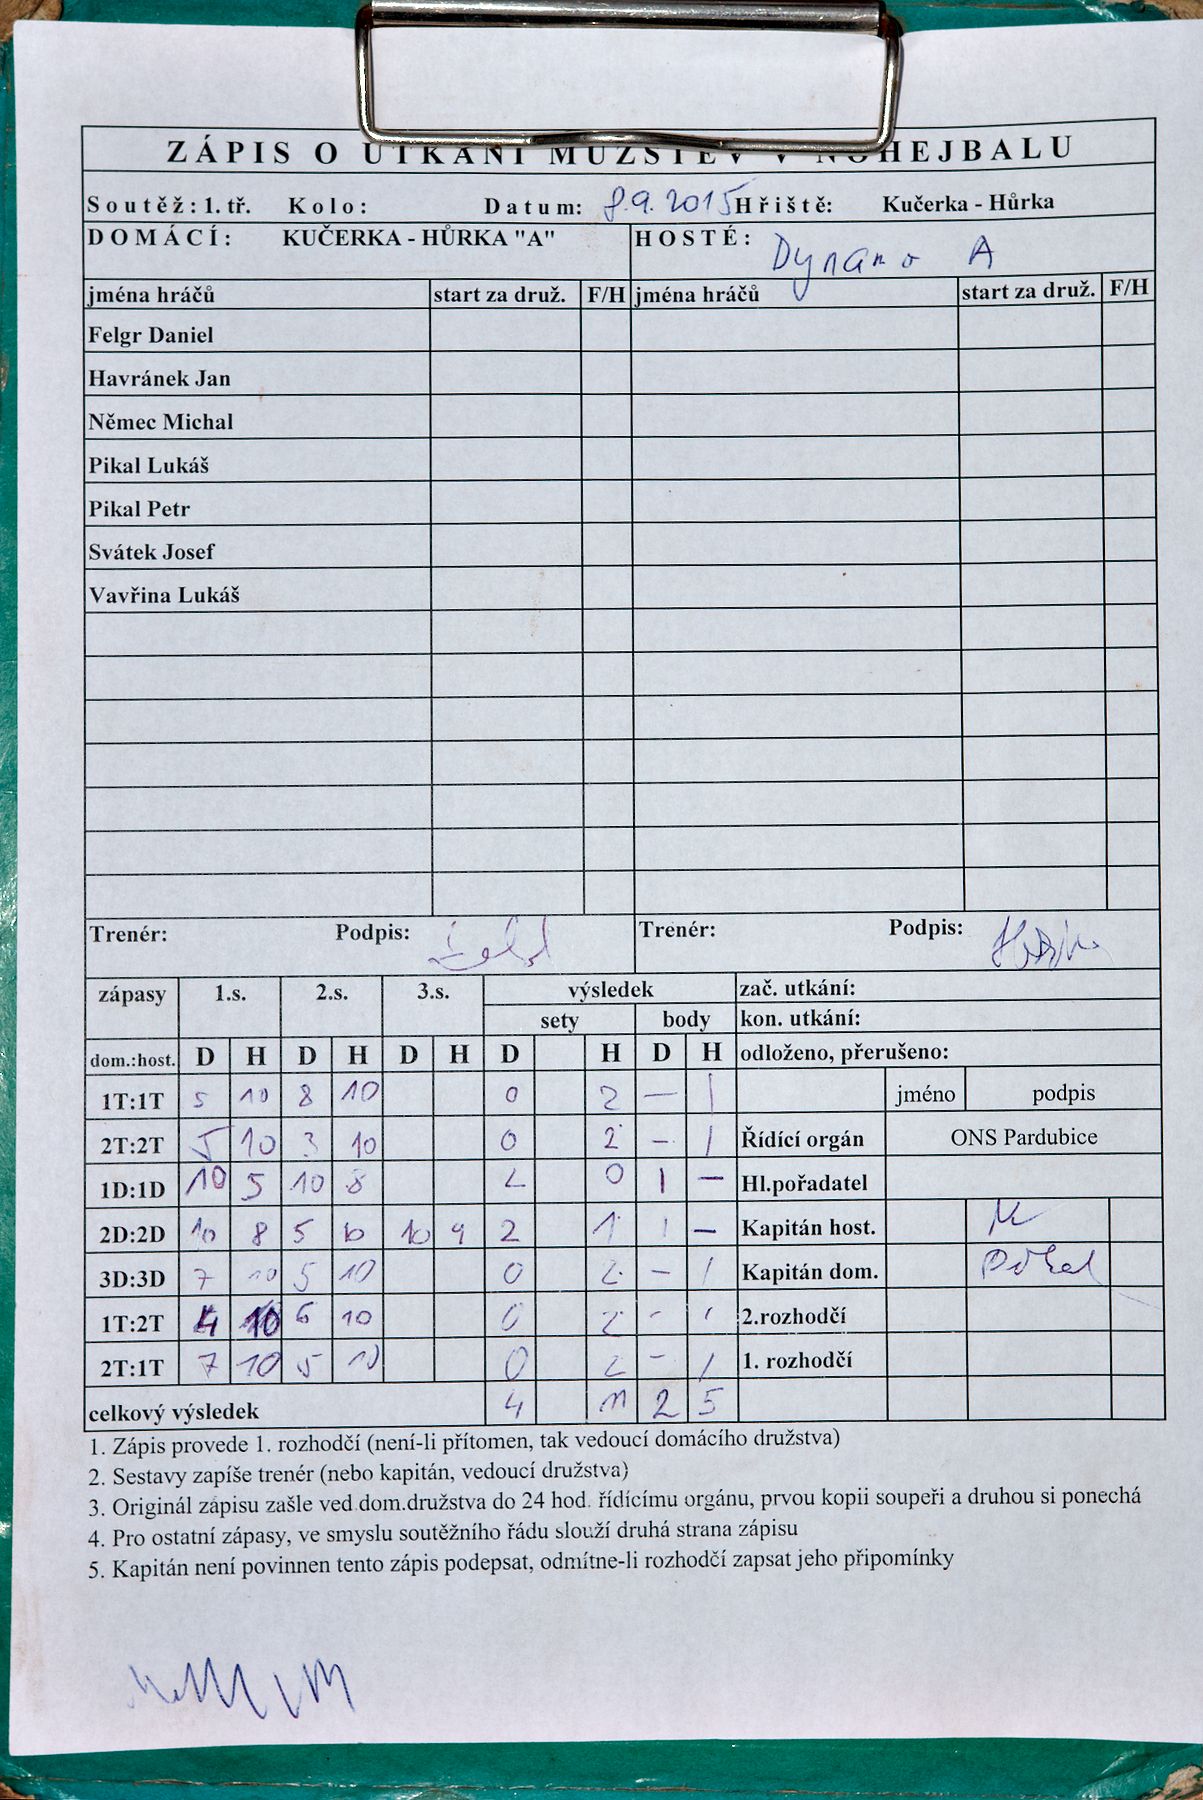 ZÁPIS O UTKÁNÍ MUŽSTEV V NOHEJBALU
Soutěž: 1. tř. Kolo: Datum: 8.9.2015 Hřiště: Kučerka - Hůrka
DOMÁCÍ: KUČERKA - HŮRKA "A" HOSTÉ: Dynamo A
jména hráčů start za druž. F/H jména hráčů start za druž. F/H
Felgr Daniel
Havránek Jan
Němec Michal
Pikal Lukáš
Pikal Petr
Svátek Josef
Vavřina Lukáš
Trenér: Podpis: Trenér: Podpis:
zápasy 1.s. 2.s. 3.s. výsledek zač. utkání:
sety body kon. utkání:
dom.:host. D H D H D H D H D H odloženo, přerušeno:
1T:1T 5 10 8 10 0 2 – 1 jméno podpis
2T:2T 5 10 3 10 0 2 – 1 Řídící orgán ONS Pardubice
1D:1D 10 5 10 8 2 0 1 – Hl.pořadatel
2D:2D 10 8 5 10 9 2 1 1 – Kapitán host.
3D:3D 7 10 5 10 0 2 – 1 Kapitán dom.
1T:2T 4 10 6 10 0 2 – 1 2.rozhodčí
2T:1T 7 10 5 10 0 2 – 1 1. rozhodčí
celkový výsledek 4 11 2 5
1. Zápis provede 1. rozhodčí (není-li přítomen, tak vedoucí domácího družstva)
2. Sestavy zapíše trenér (nebo kapitán, vedoucí družstva)
3. Originál zápisu zašle ved.dom.družstva do 24 hod. řídícímu orgánu, prvou kopii soupeři a druhou si ponechá
4. Pro ostatní zápasy, ve smyslu soutěžního řádu slouží druhá strana zápisu
5. Kapitán není povinnen tento zápis podepsat, odmítne-li rozhodčí zapsat jeho připomínky